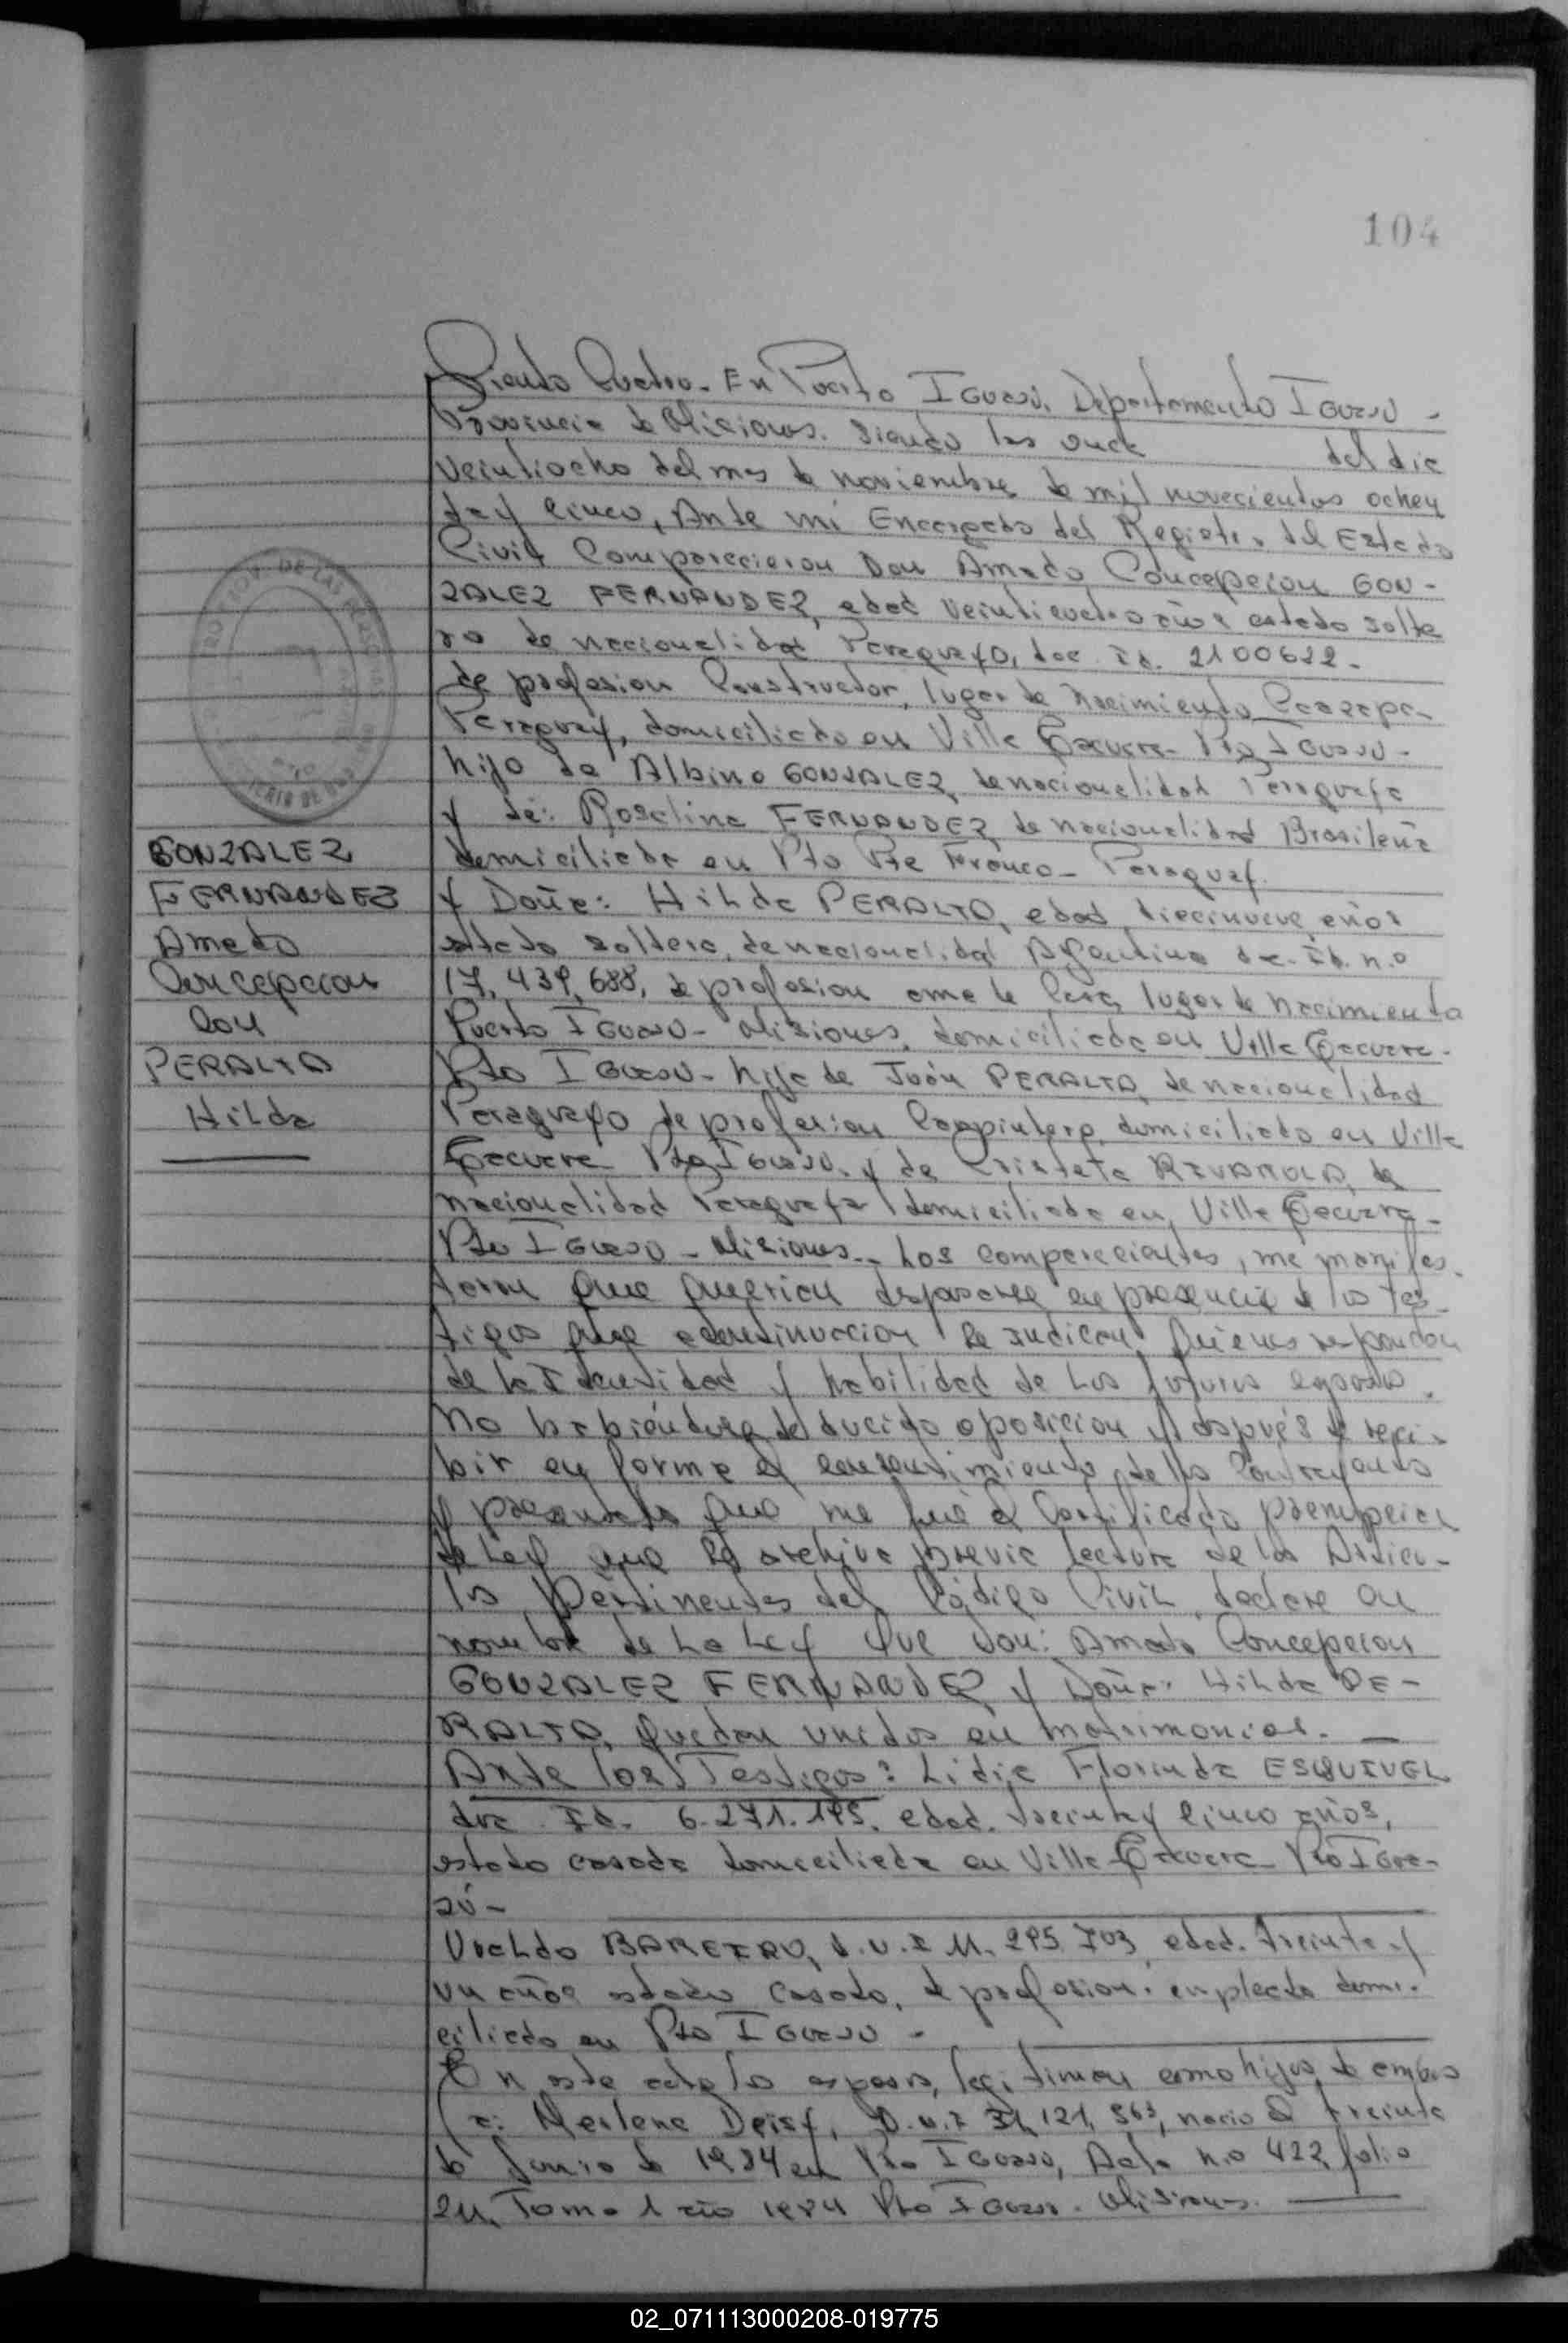 104
Ciento Cuatro. En Puerto IGUAZU, Departamento IGUAZU -
Provincia de Misiones. Siendo las once del dia
Veintiocho del mes de noviembre de mil novecientos ochen
ta y cinco, Ante mi Encargado del Registro del Estado
Civil Comparecieron Don Amado Concepcion GON-
ZALEZ FERNANDEZ, edad veinticuatro años estado solte
ro de nacionalidad Paraguayo, doc. Id. 2100622.
de profesion Constructor, lugar de nacimiento
Paraguay, domiciliado en Villa Pto IGUAZU-
hijo de Albino GONZALEZ, de nacionalidad Paraguaya
y de: Roselina FERNANDEZ de nacionalidad Brasileña
domiciliada en Pto Pte Franco - Paraguay.
y Doña: Hilda PERALTA, edad diecinueve años
estado soltera, de nacionalidad Argentina doc. Id. n.o
17.439.688, de profesion ama de Casa, lugar de nacimiento
Puerto IGUAZU - Misiones, domiciliada en Villa
Pto IGUAZU - hija de Juán PERALTA, de nacionalidad
Paraguayo de profesion Carpintero, domiciliado en Villa
Pto IGUAZU. y de RIVAROLA, de
nacionalidad Paraguaya domiciliada en, Villa
Pto IGUAZU - Misiones. Los comparecientes, me manifes
taron que querian desposarse en presencia de los tes-
tigos que a continuacion se indican, quienes responden
de la Identidad y habilidad de los futuros esposos.
No habiéndose deducido oposicion y después de reci-
bir en forma el consentimiento de los Contrayentes
y presentado que me fué el Certificado prenupcial
de Ley que se archiva previa lectura de los Articu-
los pertinentes del Código Civil, declare en
nombre de la Ley que Don: Amado Concepcion
GONZALEZ FERNANDEZ y Doña: Hilda PE-
RALTA, quedan unidos en matrimonio.
Ante los Testigos: Lidia Florinda ESQUIVEL
doc. Id. 6.271.195, edad. treinta y cinco años,
estado casada domiciliada en Villa Pto IGUA-
zú -
Ubaldo BAREIRO, D.N.I M. 295 703 edad. treinta y
un años estado casado, de profesion: empleado domi-
ciliado en Pto IGUAZU -
En este acto los esposos, legitiman como hijos de ambos
a: Marlene Deisy, D.N.I 31.121.363, nacio el treinta
de Junio de 1984 en Pto IGUAZU, Acta n.o 422, folio
211, Tomo 1 año 1984 Pto IGUAZU. Misiones.
GONZALEZ
FERNANDEZ
Amado
Concepcion
Con
PERALTA
Hilda
02_071113000208-019775